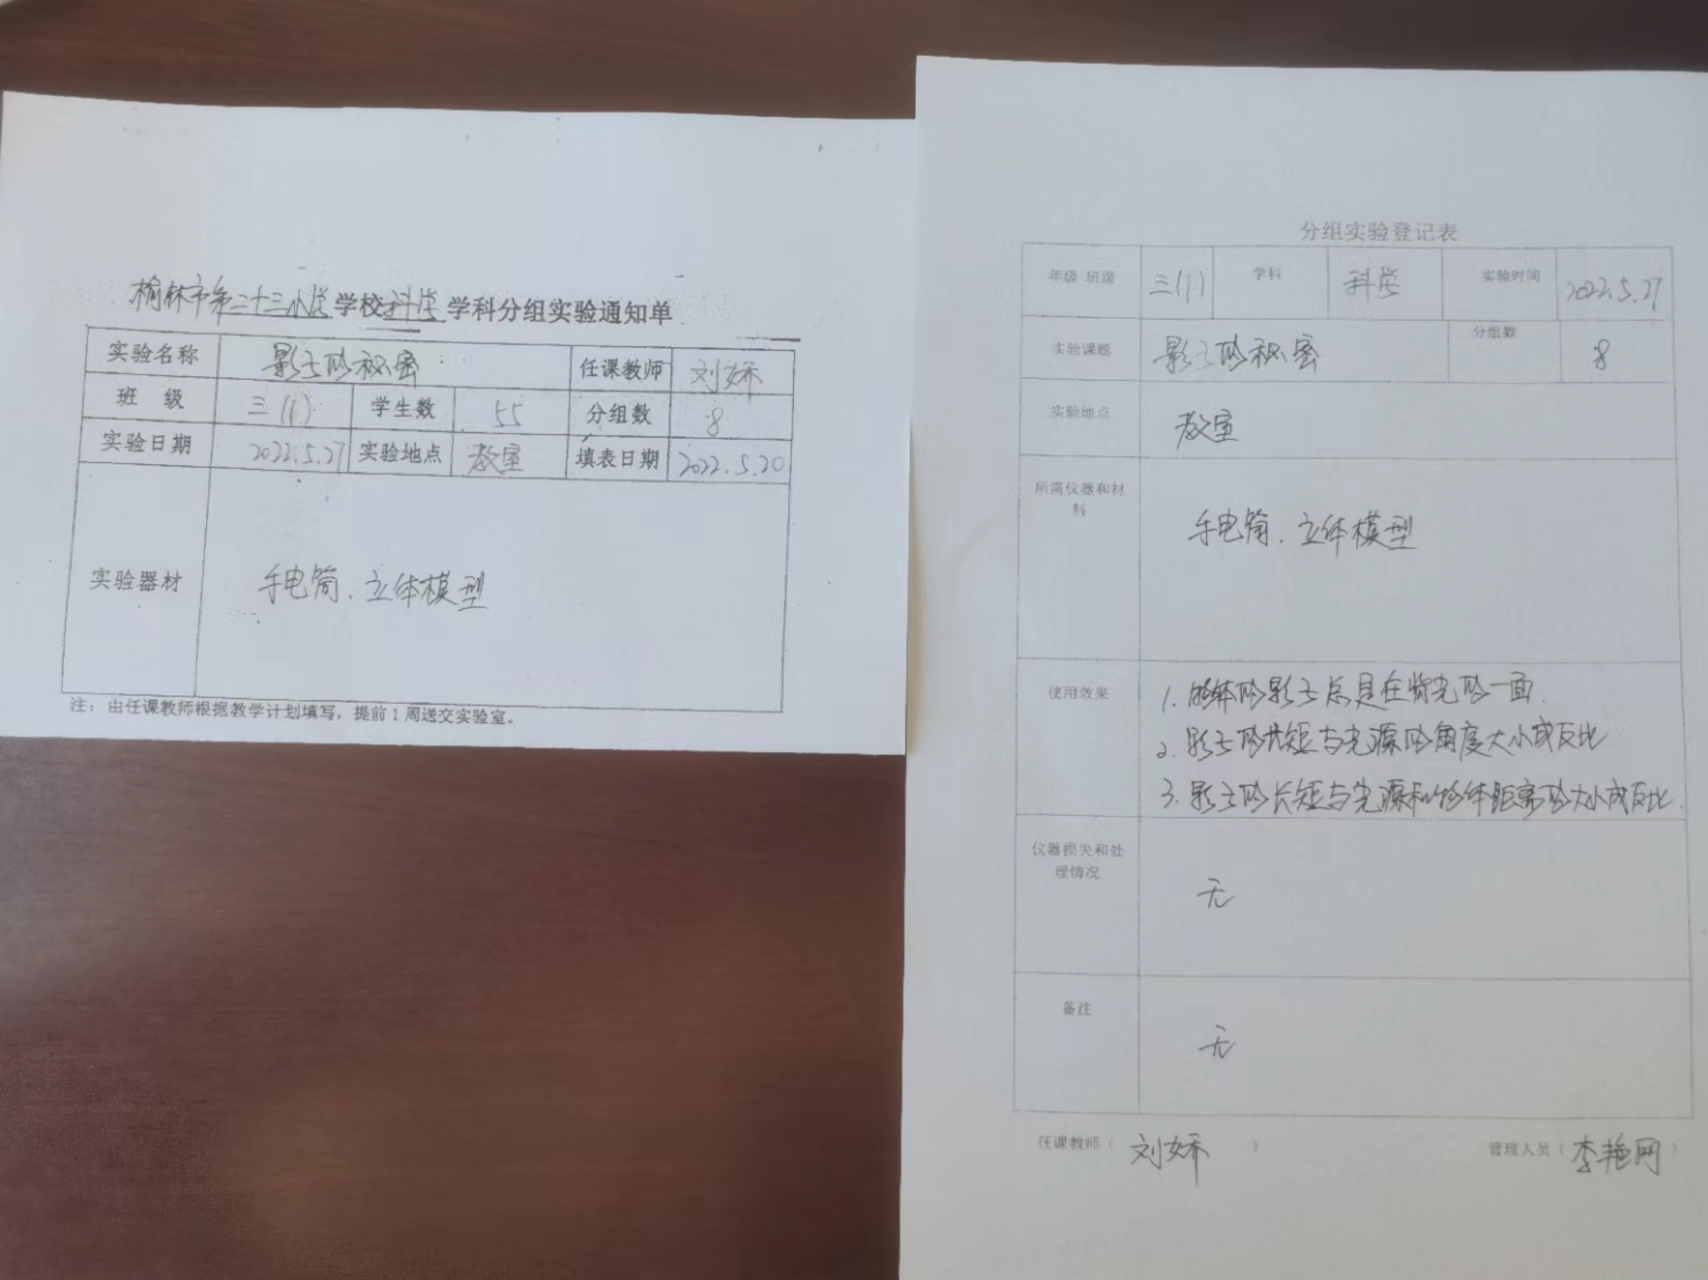 榆林市第二十三小学学校科学学科分组实验通知单
实验名称 影子的秘密 任课教师 刘娇
班 级 三(1) 学生数 55 分组数 8
实验日期 2022.5.27 实验地点 教室 填表日期 2022.5.20
实验器材 手电筒、立体模型
注：由任课教师根据教学计划填写，提前1周送交实验室。
分组实验登记表
年级 班级 三(1) 学科 科学 实验时间 2022.5.27
实验课题 影子的秘密 分组数 8
实验地点 教室
所需仪器和材
料
手电筒、立体模型
使用效果
1. 物体的影子总是在背光的一面.
2. 影子的长短与光源的角度大小成反比
3. 影子的长短与光源和物体距离的大小成反比.
仪器损失和处
理情况
无
备注
无
任课教师（刘娇） 管理人员（李艳网）